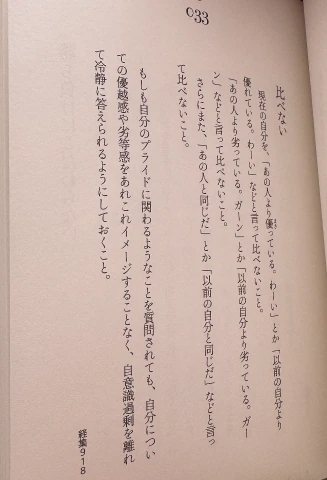 033
比べない
現在の自分を、「あの人より優っている。わーい」とか「以前の自分より
優れている。わーい」などと言って比べないこと。
「あの人より劣っている。ガーン」とか「以前の自分より劣っている。ガー
ン」などと言って比べないこと。
さらにまた、「あの人と同じだ」とか「以前の自分と同じだ」などと言っ
て比べないこと。
もしも自分のプライドに関わるようなことを質問されても、自分につい
ての優越感や劣等感をあれこれイメージすることなく、自意識過剰を離れ
て冷静に答えられるようにしておくこと。
経集918